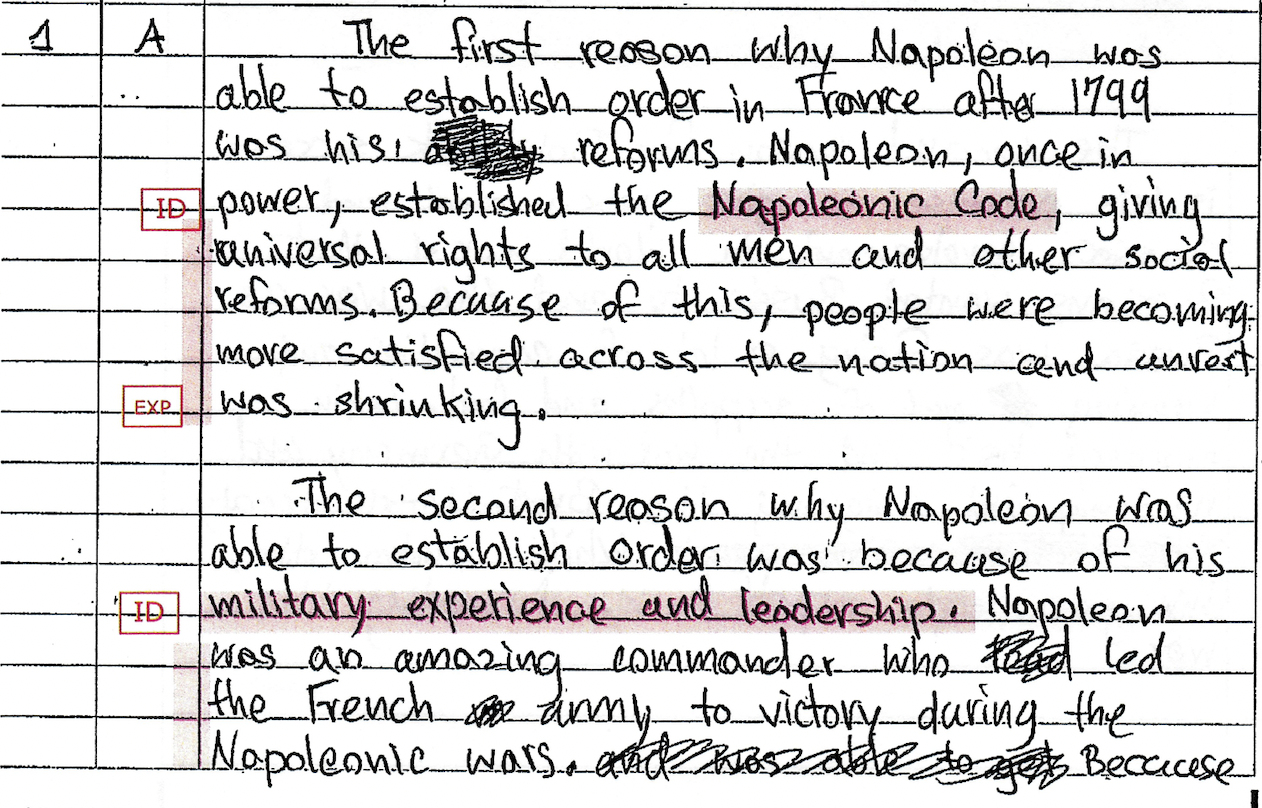 1 A The first reason why Napoleon was
able to establish order in France after 1799
was his reforms. Napoleon, once in
ID power, established the Napoleonic Code, giving
universal rights to all men and other social
reforms. Becuause of this, people were becoming
more satisfied across the nation and unrest
EXP was shrinking.
The second reason why Napoleon was
able to establish order was because of his
ID military experience and leadership. Napoleon
was an amazing commander who led
the French army to victory during the
Napoleonic wars. Because